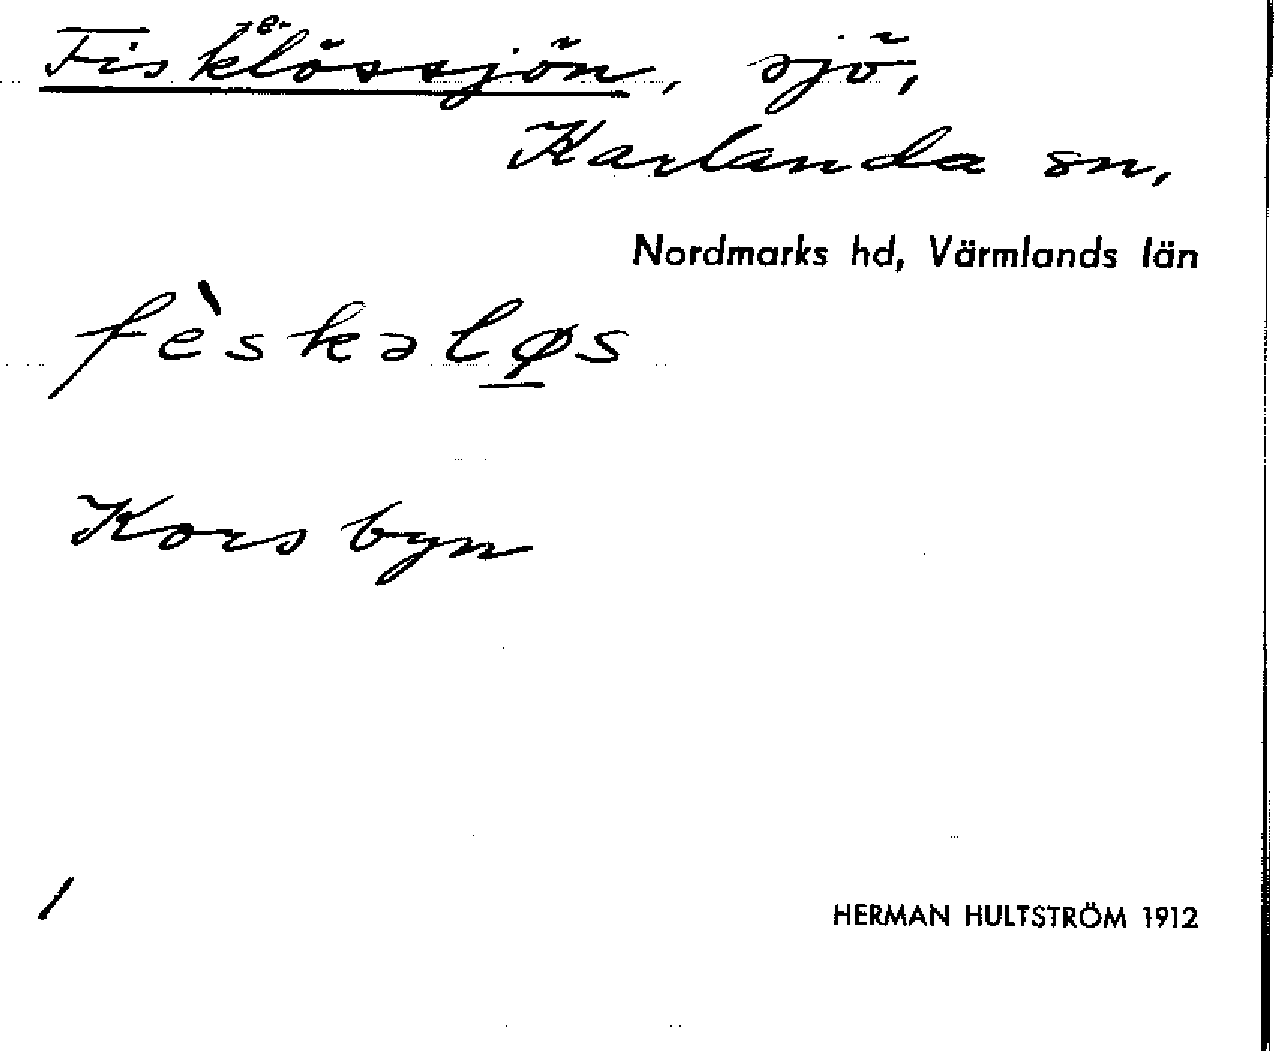 -e-
Fisklössjön, sjö,
Karlanda sn,
Nordmarks hd, Värmlands län
fèskəløs
Korsbyn
1
HERMAN HULTSTRÖM 1912